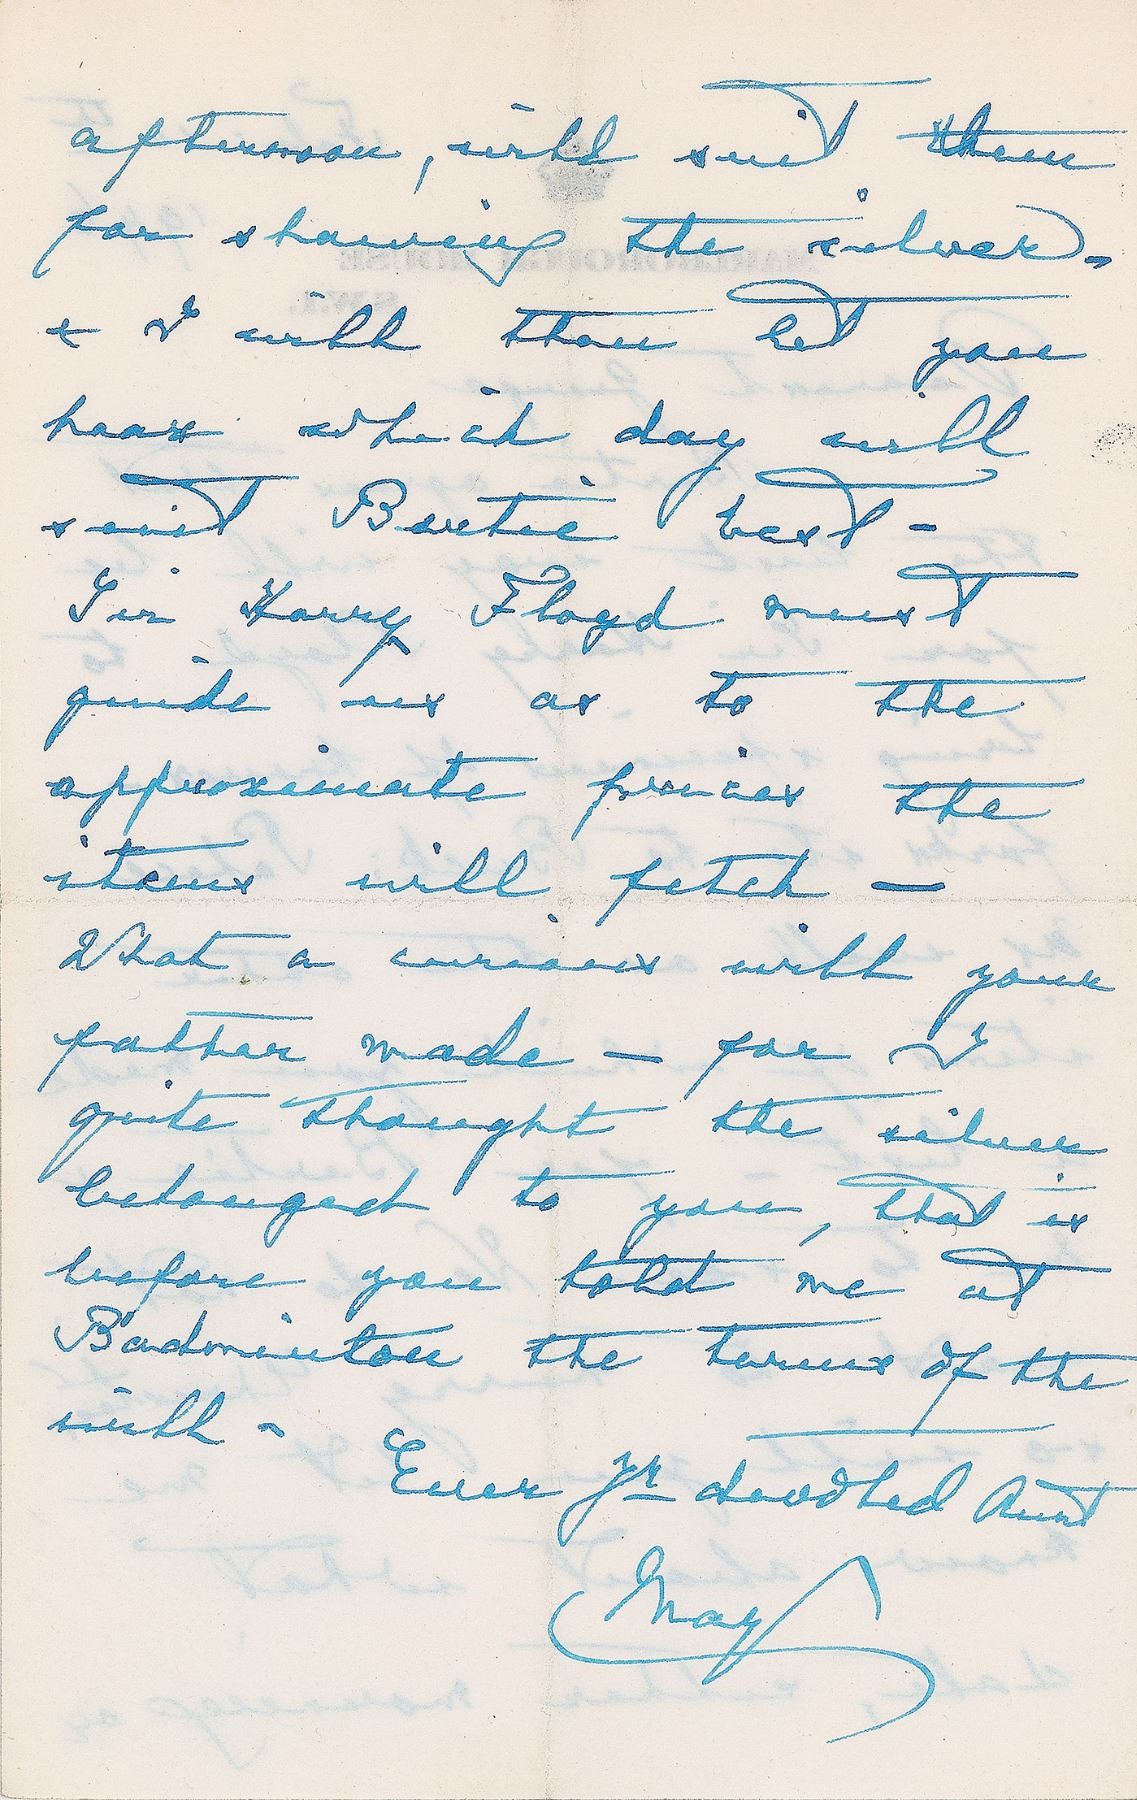 afternoon, will suit them
for showing the silver -
& I will then let you
hear which day will
suit Bertie best -
Sir Harry Floyd must
guide us as to the
approximate prices the
items will fetch -
What a curious will your
father made - for I
quite thought the silver
belonged to you, that is
before you told me at
Badminton the terms of the
will -
Ever yr devoted Aunt
May